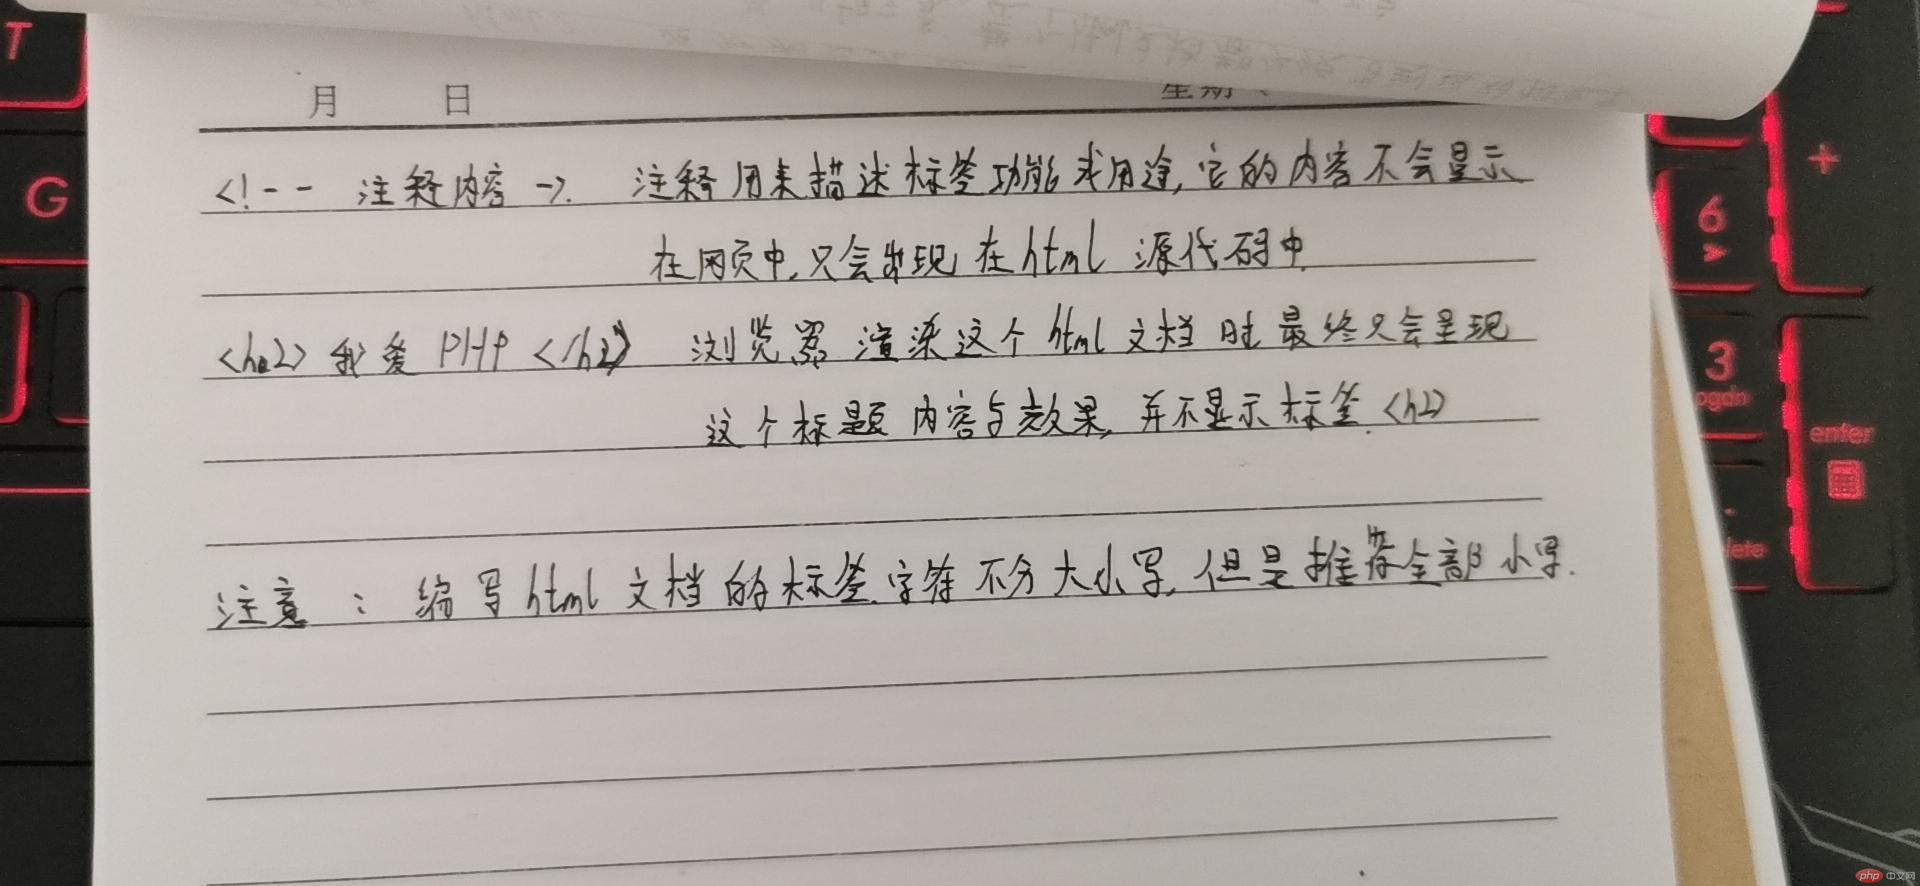 月 日 星期
<!-- 注释内容 -->. 注释用来描述标签功能或用途,它的内容不会显示
在网页中,只会出现在html 源代码中.
<h2> 我爱 PHP </h2> 浏览器渲染这个 html 文档时最终只会呈现
这个标题内容与效果, 并不显示标签 <h2>
注意 : 编写 html 文档的标签字符不分大小写, 但是推荐全部小写.
T
G
+
6
>
3
pgdn
enter
php 中文网